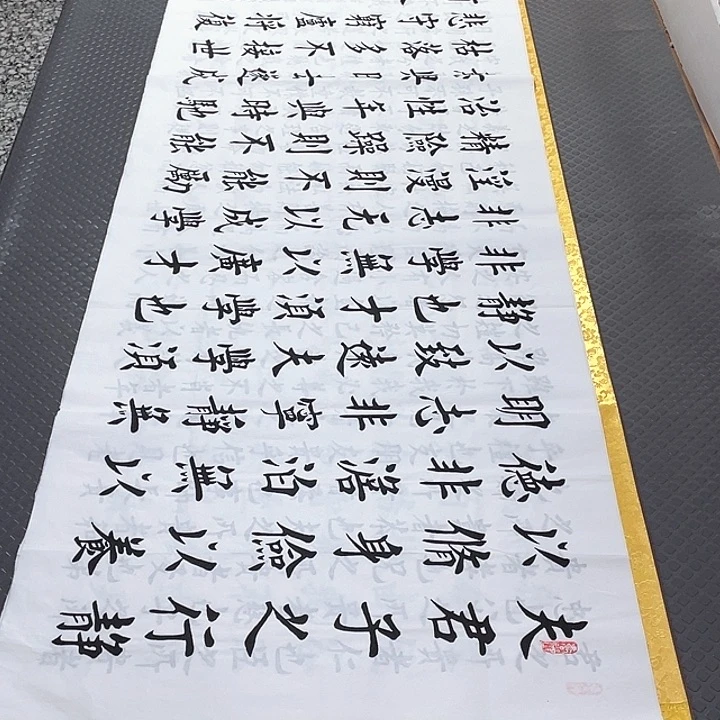 夫君子之行靜
以脩身儉以養
德非澹泊無以
明志非寧靜無
以致遠夫學須
靜也才須學也
非學無以廣才
非志无以成學
淫漫則不能勵
精險躁則不能
冶性年與時馳
意與日去遂成
枯落多不接世
悲守窮廬將復